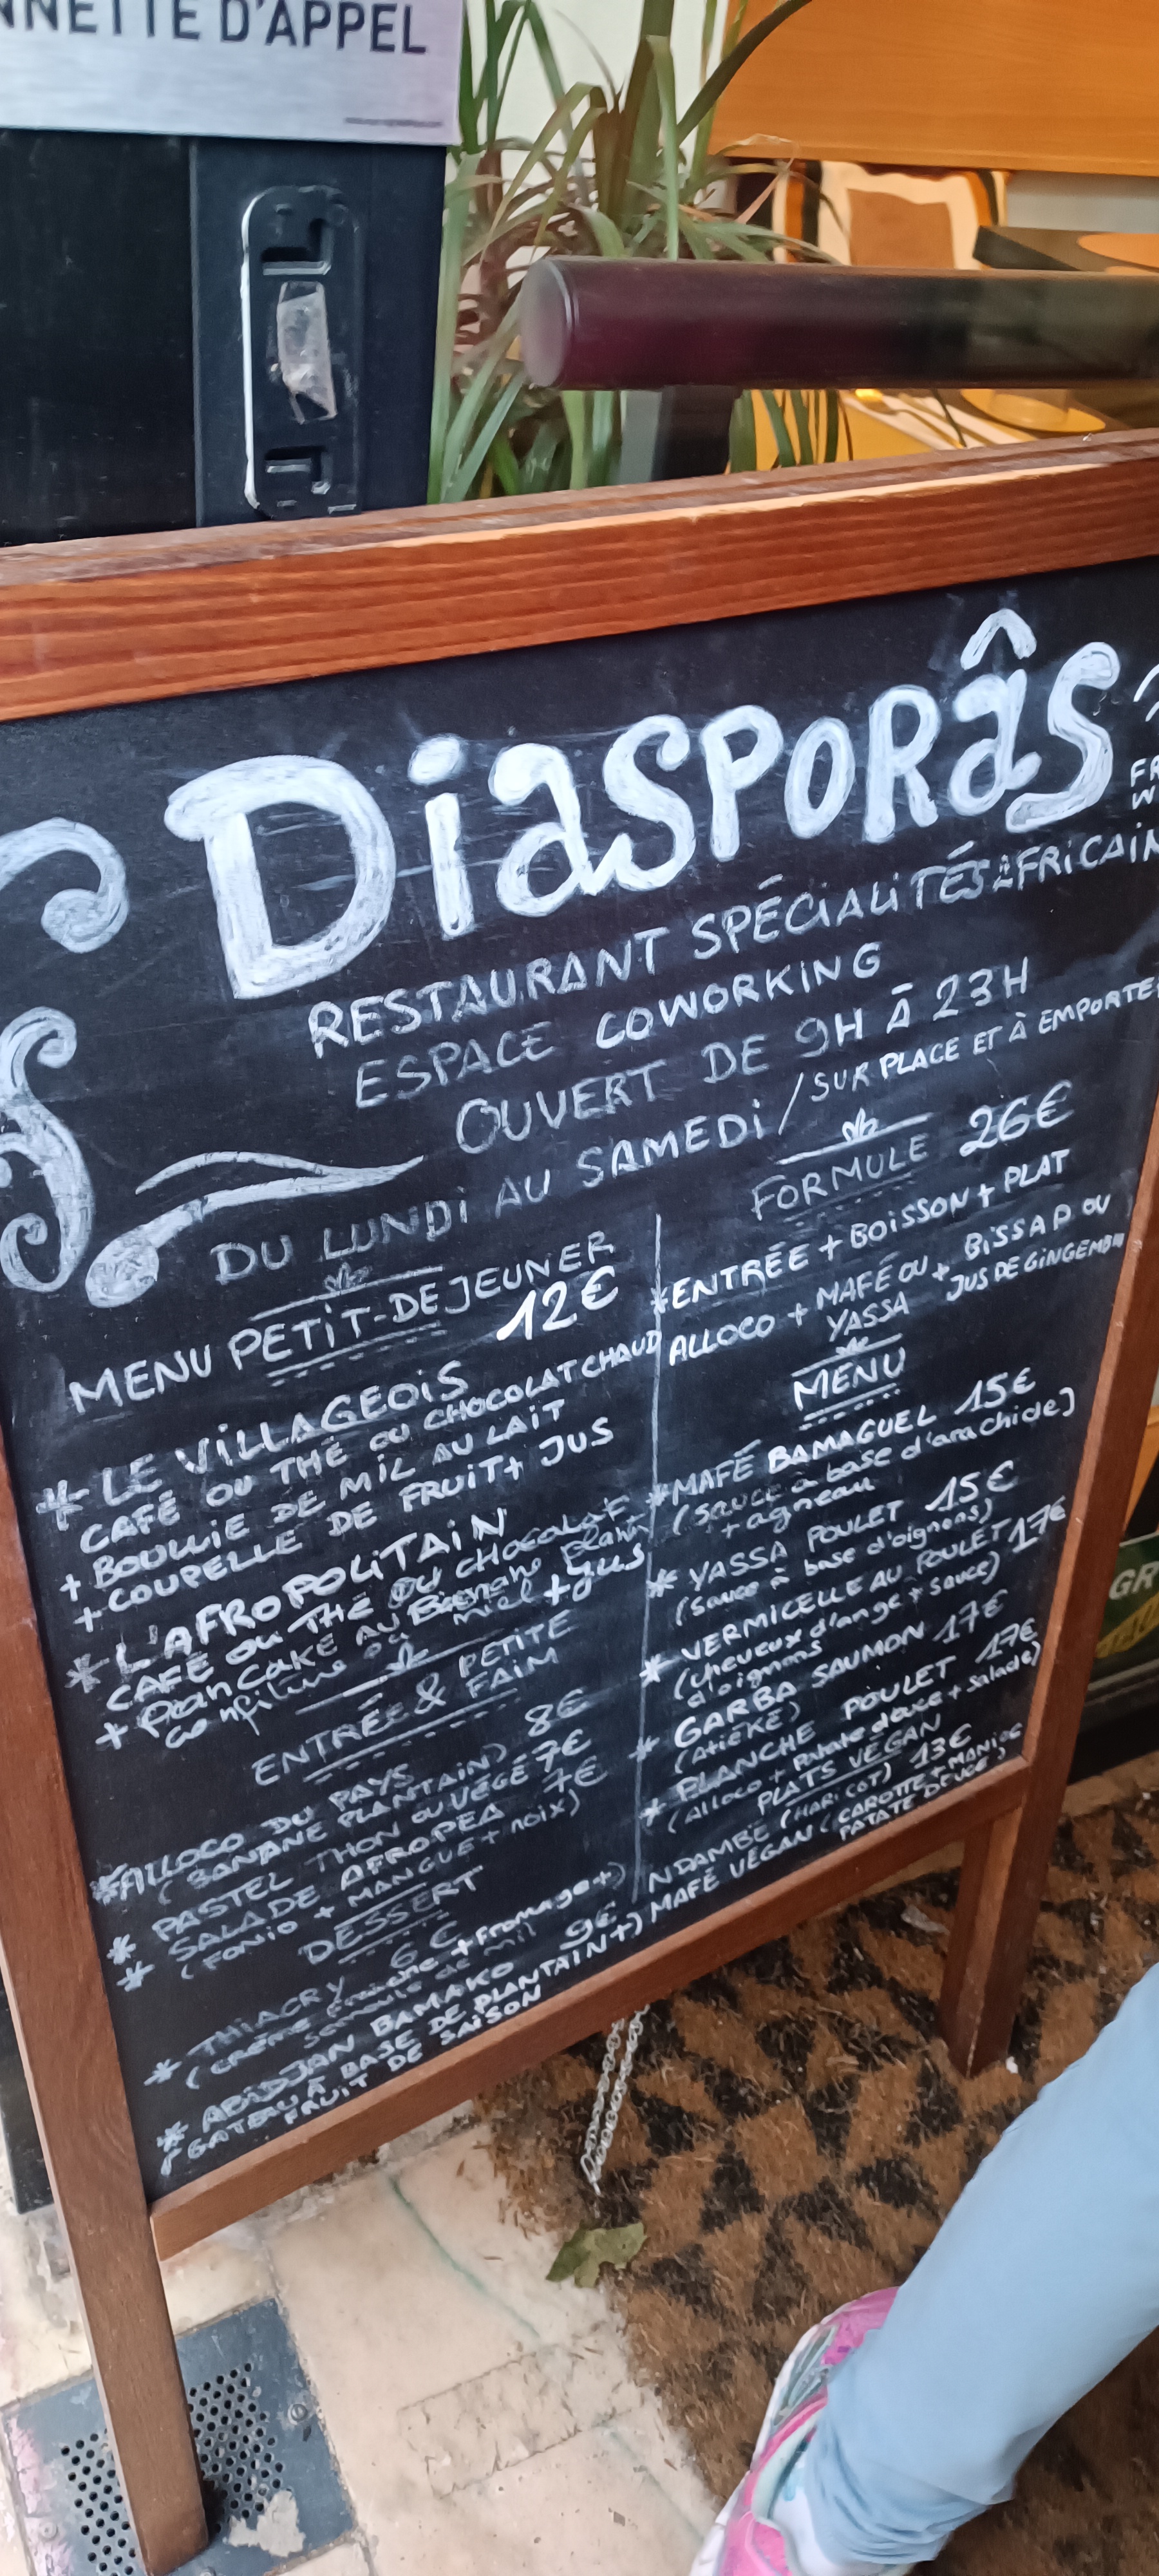 NNETTE D'APPEL
DiasporâS
FR
W
RESTAURANT SPÉCIALITÉS AFRICAIN
ESPACE COWORKING
OUVERT DE 9H À 23H
DU LUNDI AU SAMEDI / SUR PLACE ET À EMPORTE
MENU PETIT-DEJEUNER
12€
* LE VILLAGEOIS
CAFÉ OU THÉ OU CHOCOLAT CHAUD
+ BOUILLIE DE MIL AU LAIT
+ COUPELLE DE FRUIT + JUS
* L'AFROPOLITAIN
CAFÉ OU THÉ OU CHOCOLAT
+ PANCAKE AU Banane Plant
confiture ou miel + jus
ENTRÉE & PETITE
FAIM
* ALLOCO DU PAYS 8€
(BANANE PLANTAIN)
* PASTEL THON OU VÉGÉ 7€
* SALADE AFROPEA 7€
(FONIO + MANGUE + noix)
DESSERT
* THIACRY 6€
(crème fraiche + fromage +)
semoule de mil
* ABIDJAN BAMAKO 9€
(GATEAU À BASE DE PLANTAIN +)
FRUIT DE SAISON
FORMULE 26€
* ENTRÉE + BOISSON + PLAT
ALLOCO + MAFÉ OU + BISSAP OU
YASSA JUS DE GINGEMBR
MENU
* MAFÉ BAMAGUEL 15€
(sauce à base d'arachide)
+ agneau
* YASSA POULET 15€
(sauce à base d'oignons)
* VERMICELLE AU POULET 17€
(cheveux d'ange + sauce)
d'oignons
* GARBA SAUMON 17€
(Atiéké)
* PLANCHE POULET 17€
(alloco + Patate douce + salade)
PLATS VÉGAN
NDAMBÉ (HARICOT) 13€
MAFÉ VÉGAN (CAROTTE + MANIOC
PATATE DOUCE)
GR